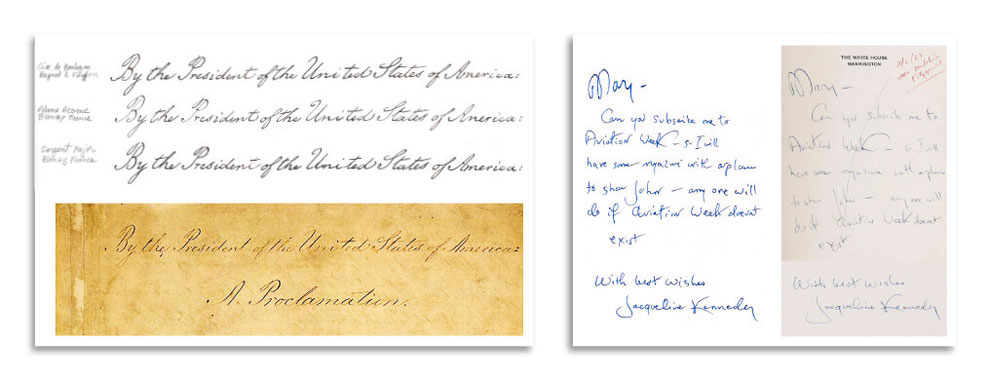 By the President of the United States of America:
By the President of the United States of America:
By the President of the United States of America:
By the President of the United States of America:
A Proclamation.
Mary –
Can you subscribe me to
Aviation Week – I will
have some with
to show John – any one will
do if Aviation Week doesnt
exist
With best wishes
Jacqueline Kennedy
THE WHITE HOUSE
WASHINGTON
Mary –
Can you subscribe me to
Aviation Week – I will
have some with
to show John – any one will
do if Aviation Week doesnt
exist
With best wishes
Jacqueline Kennedy